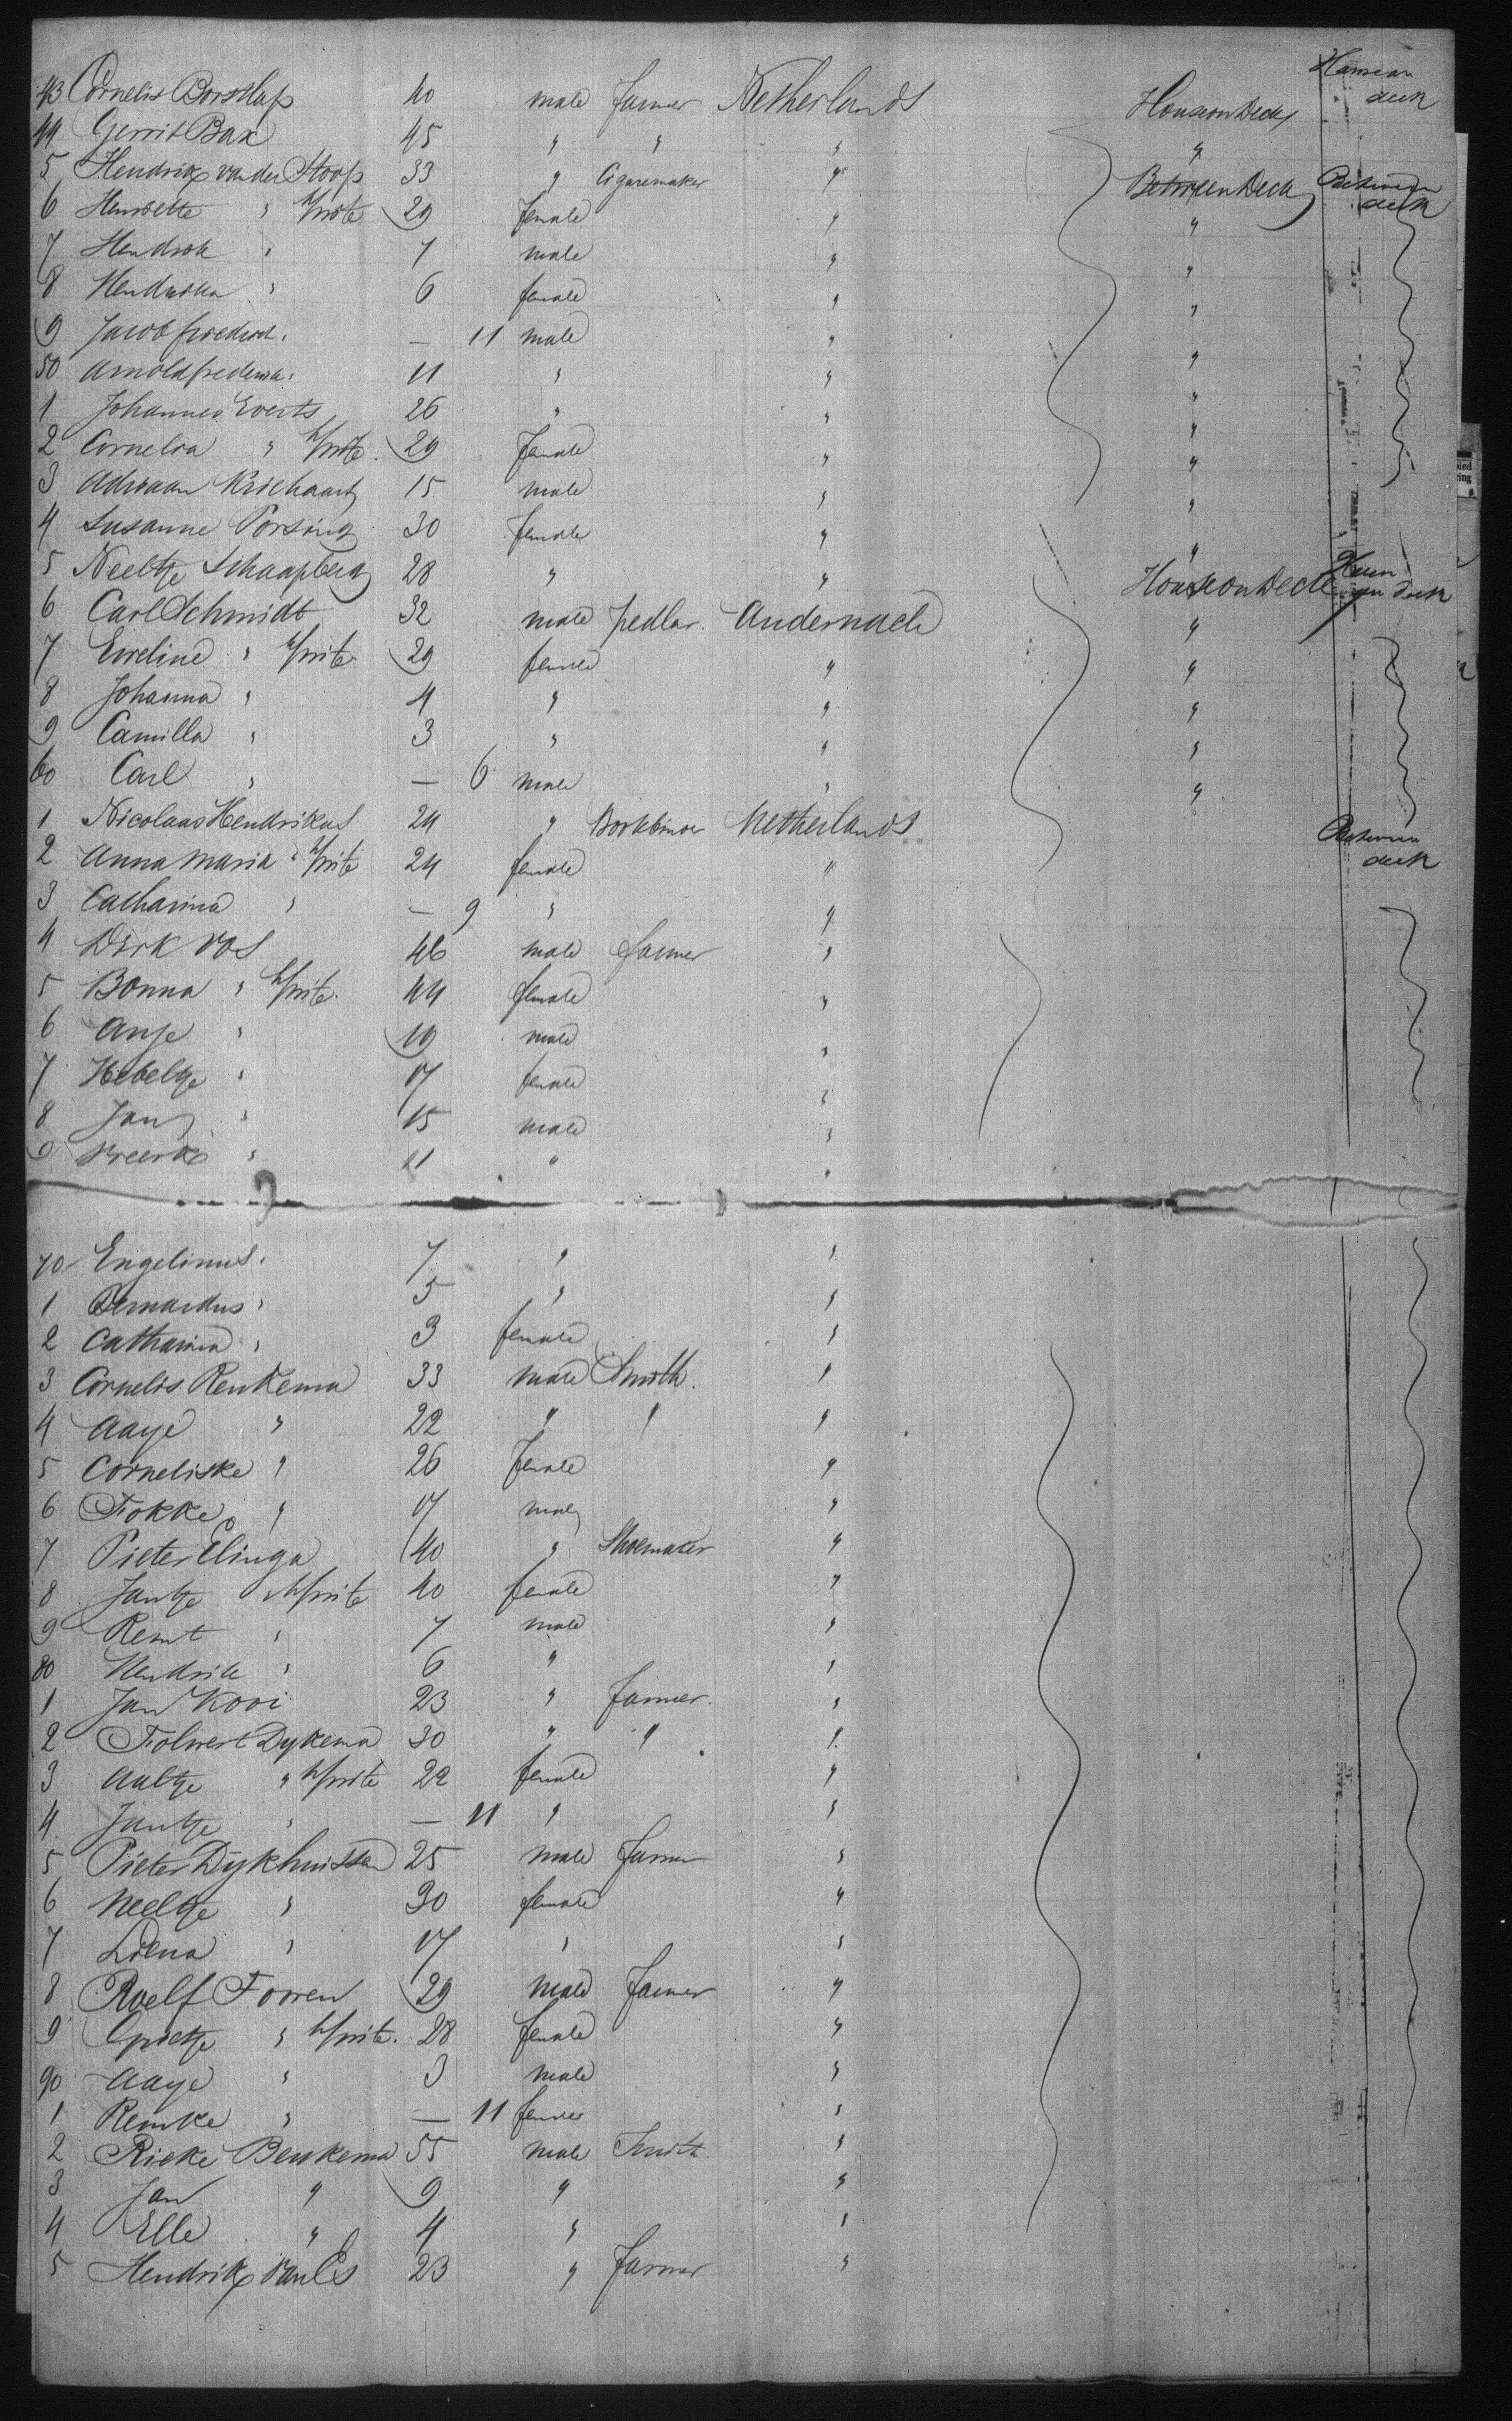 43 Cornelis Borstlap 40 male farmer Netherlands House on Deck
44 Gerrit Bax 45 " " " "
5 Hendrik van der Stoop 33 " Cigaremaker " Between Deck Between deck
6 Henriette " h/wite 29 female " "
7 Hendrik " 7 male " "
8 Hendrika " 6 female " "
9 Jacob fredrik " — 11 male " "
50 Arnold frederik " 11 " " "
1 Johannes Everts 26 " " "
2 Cornelia " h/wite 29 female " "
3 Adriaan Krichaart 15 male " "
4 Susanne Porsing 30 female " "
5 Neeltje Schaapberg 28 " "
6 Carl Schmidt 32 male pedlar. Andernach House on Deck
7 Eveline " h/wite 29 female " "
8 Johanna " 4 " " "
9 Camilla " 3 " " "
60 Carl " — 6 male " "
1 Nicolaas Hendrikus 24 " Bookbinder Netherlands Between deck
2 Anna Maria " h/wite 24 female "
3 Catharina " — 9 " "
4 Dirk Vos 46 male farmer "
5 Bonna " h/wite 44 female "
6 Anje " 19 male "
7 Hebeltje " 17 female "
8 Jan " 15 male "
9 Freerk " 11 " "
70 Engelinus " 7 " "
1 Bernardus " 5 " "
2 Catharina " 3 female "
3 Cornelis Renkema 33 male Smith. "
4 Aaye " 22 " " "
5 Corneliske " 26 female "
6 Fokke " 17 male "
7 Pieter Elinga 40 " Shoemaker "
8 Jantje " h/wite 40 female "
9 Remt " 7 male "
80 Hendrik " 6 " "
1 Jan Kooi 23 " farmer. "
2 Folwert Dykema 30 " " "
3 Aaltje " h/wite 22 female "
4 Jantje " — 11 " "
5 Pieter Dykhuissen 25 male farmer "
6 Neeltje " 30 female "
7 Liena " 17 " "
8 Roelf Torren 29 male farmer "
9 Grietje " h/wite. 28 female "
90 Aaye " 3 male "
1 Remke " — 11 female "
2 Rieke Beukema 55 male Smith "
3 Jan " 9 " "
4 Elle " 4 " "
5 Hendrik van Es 23 " farmer "